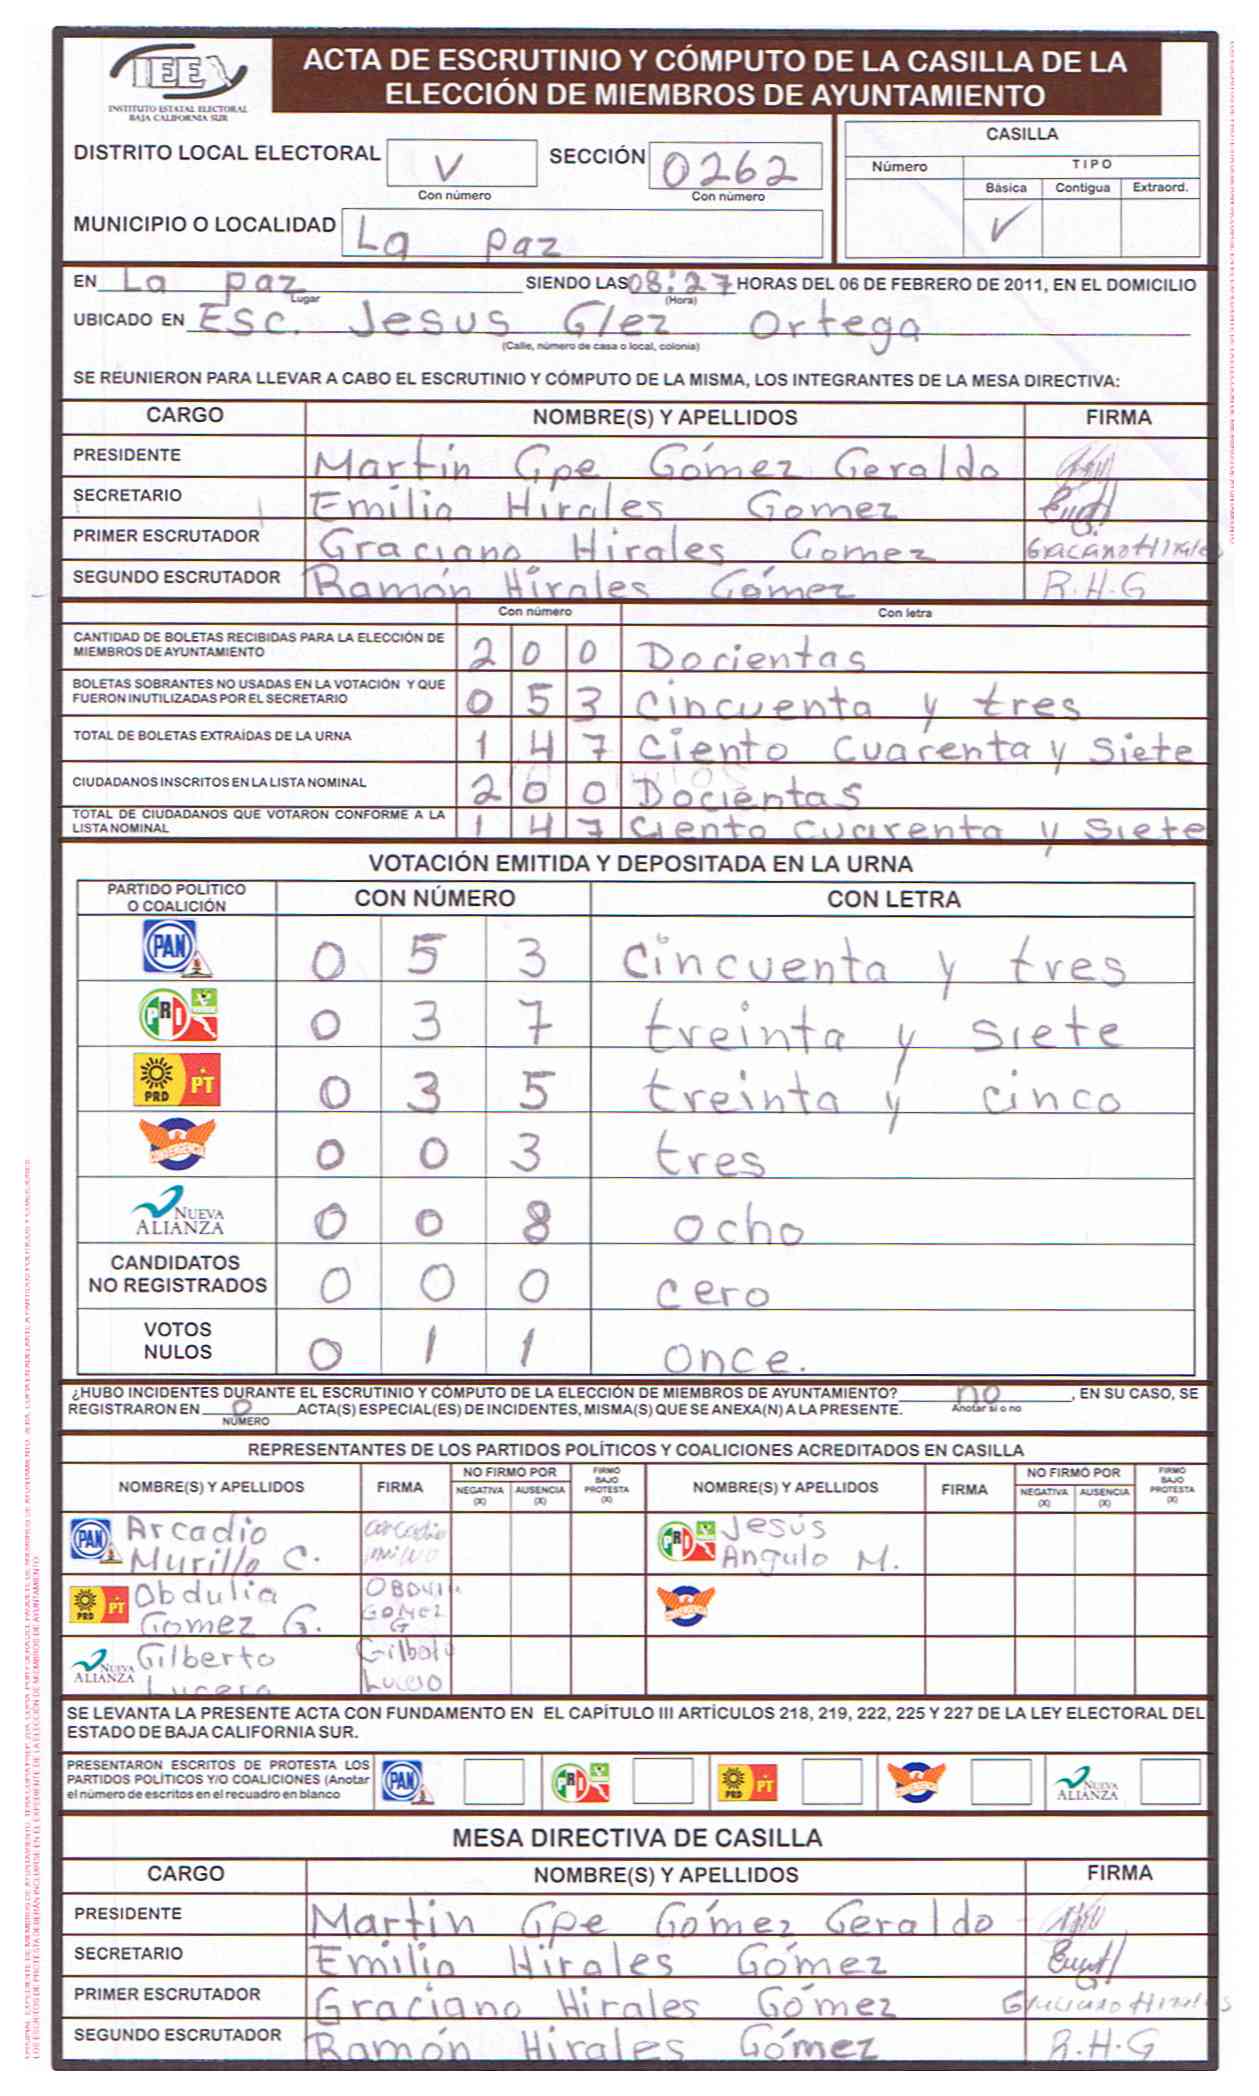 IEE
INSTITUTO ESTATAL ELECTORAL
BAJA CALIFORNIA SUR
ACTA DE ESCRUTINIO Y CÓMPUTO DE LA CASILLA DE LA
ELECCIÓN DE MIEMBROS DE AYUNTAMIENTO
DISTRITO LOCAL ELECTORAL V SECCIÓN 0262
Con número Con número
MUNICIPIO O LOCALIDAD La paz
CASILLA
Número TIPO
Básica Contigua Extraord.
✓
EN La paz SIENDO LAS 08:27 HORAS DEL 06 DE FEBRERO DE 2011, EN EL DOMICILIO
Lugar (Hora)
UBICADO EN Esc. Jesus Glez Ortega
(Calle, número de casa o local, colonia)
SE REUNIERON PARA LLEVAR A CABO EL ESCRUTINIO Y CÓMPUTO DE LA MISMA, LOS INTEGRANTES DE LA MESA DIRECTIVA:
CARGO NOMBRE(S) Y APELLIDOS FIRMA
PRESIDENTE Martin Gpe Gómez Geraldo
SECRETARIO Emilia Hirales Gomez
PRIMER ESCRUTADOR Graciano Hirales Gomez
SEGUNDO ESCRUTADOR Ramón Hirales Gómez R.H.G
Con número Con letra
CANTIDAD DE BOLETAS RECIBIDAS PARA LA ELECCIÓN DE
MIEMBROS DE AYUNTAMIENTO 2 0 0 Docientas
BOLETAS SOBRANTES NO USADAS EN LA VOTACIÓN Y QUE
FUERON INUTILIZADAS POR EL SECRETARIO 0 5 3 Cincuenta y tres
TOTAL DE BOLETAS EXTRAÍDAS DE LA URNA 1 4 7 Ciento cuarenta y siete
CIUDADANOS INSCRITOS EN LA LISTA NOMINAL 2 0 0 Docientas
TOTAL DE CIUDADANOS QUE VOTARON CONFORME A LA
LISTA NOMINAL 1 4 7 Ciento cuarenta y siete
VOTACIÓN EMITIDA Y DEPOSITADA EN LA URNA
PARTIDO POLÍTICO
O COALICIÓN CON NÚMERO CON LETRA
PAN 0 5 3 cincuenta y tres
PRI 0 3 7 treinta y siete
PRD PT 0 3 5 treinta y cinco
CONVERGENCIA 0 0 3 tres
NUEVA
ALIANZA 0 0 8 ocho
CANDIDATOS
NO REGISTRADOS 0 0 0 cero
VOTOS
NULOS 0 1 1 once.
¿HUBO INCIDENTES DURANTE EL ESCRUTINIO Y CÓMPUTO DE LA ELECCIÓN DE MIEMBROS DE AYUNTAMIENTO? no, EN SU CASO, SE
REGISTRARON EN 0 ACTA(S) ESPECIAL(ES) DE INCIDENTES, MISMA(S) QUE SE ANEXA(N) A LA PRESENTE. Anotar sí o no
NÚMERO
REPRESENTANTES DE LOS PARTIDOS POLÍTICOS Y COALICIONES ACREDITADOS EN CASILLA
NOMBRE(S) Y APELLIDOS FIRMA NO FIRMÓ POR NEGATIVA (X) AUSENCIA (X) FIRMÓ BAJO PROTESTA (X) NOMBRE(S) Y APELLIDOS FIRMA NO FIRMÓ POR NEGATIVA (X) AUSENCIA (X) FIRMÓ BAJO PROTESTA (X)
PAN Arcadio
Murillo C.
PRI Jesús
Angulo M.
PRD PT Obdulia
Gomez G.
GOMEZ
G
NUEVA
ALIANZA Gilberto
Lucero
Lucero
SE LEVANTA LA PRESENTE ACTA CON FUNDAMENTO EN EL CAPÍTULO III ARTÍCULOS 218, 219, 222, 225 Y 227 DE LA LEY ELECTORAL DEL
ESTADO DE BAJA CALIFORNIA SUR.
PRESENTARON ESCRITOS DE PROTESTA LOS
PARTIDOS POLÍTICOS Y/O COALICIONES (Anotar
el número de escritos en el recuadro en blanco
PAN PRI PRD PT NUEVA ALIANZA
MESA DIRECTIVA DE CASILLA
CARGO NOMBRE(S) Y APELLIDOS FIRMA
PRESIDENTE Martin Gpe Gómez Geraldo
SECRETARIO Emilia Hirales Gómez
PRIMER ESCRUTADOR Graciano Hirales Gómez
SEGUNDO ESCRUTADOR Ramón Hirales Gómez R.H.G